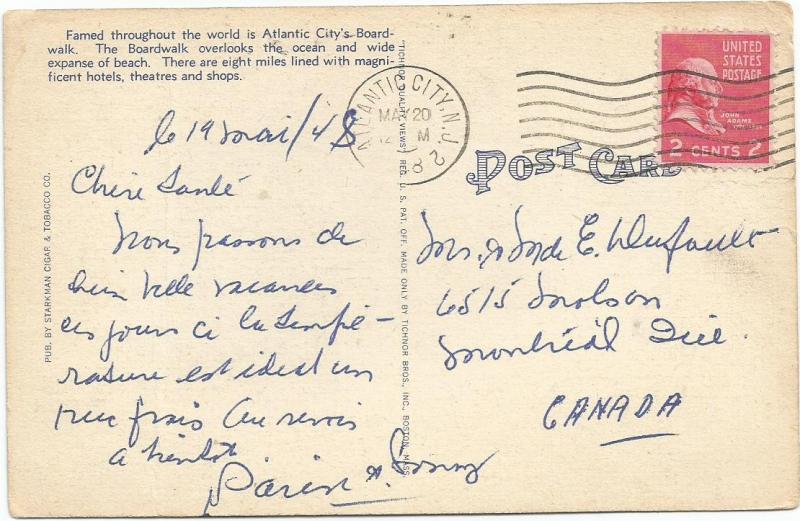 Famed throughout the world is Atlantic City's Board-
walk. The Boardwalk overlooks the ocean and wide
expanse of beach. There are eight miles lined with magni-
ficent hotels, theatres and shops.
PUB. BY STARKMAN CIGAR & TOBACCO CO.
"TICHNOR QUALITY VIEWS" REG. U. S. PAT. OFF. MADE ONLY BY TICHNOR BROS., INC., BOSTON, MASS.
ATLANTIC CITY, N.J. 2
MAY 20
M
UNITED
STATES
POSTAGE
JOHN
ADAMS
2 CENTS 2
POST CARD
le 19 mai/48
Chère
Nous passons de
bien belle vacances
ces jours ci la tempé-
rature est ideal un
peu frais Au revoir
a bientot
Mr. & Mde E. Dufault
6515 Molson
Montréal Que.
CANADA